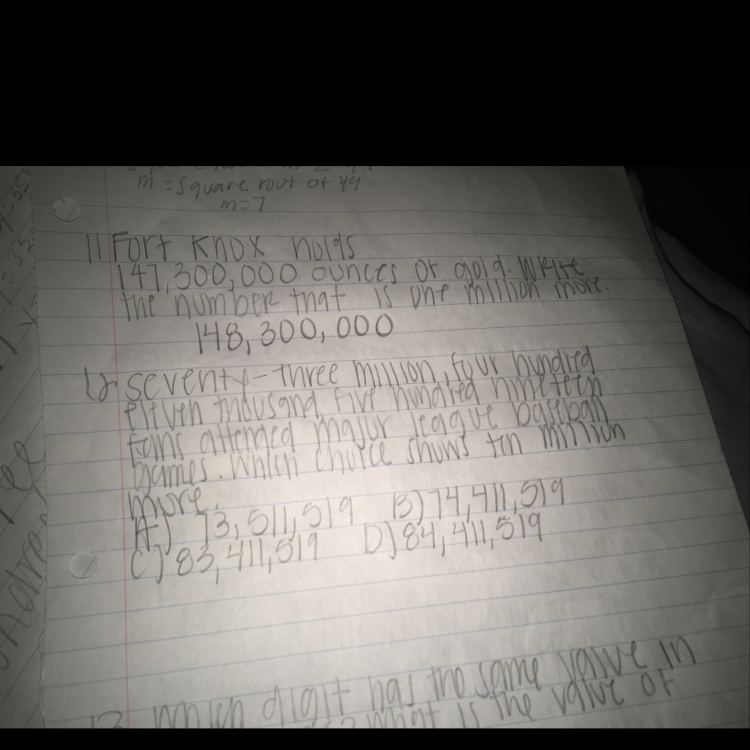 m = square rout of 49
m=7
11 Fort Knox holds
147,300,000 ounces of gold. Write
the number that is one million more.
148,300,000
12 seventy-three million, four hundred
eleven thousand, five hundred nineteen
fans attended major league baseball
games. Which choice shows ten million
more.
A) 73,511,519 B) 74,411,519
C) 83,411,519 D) 84,411,519
13 which digit has the same value in
what is the value of